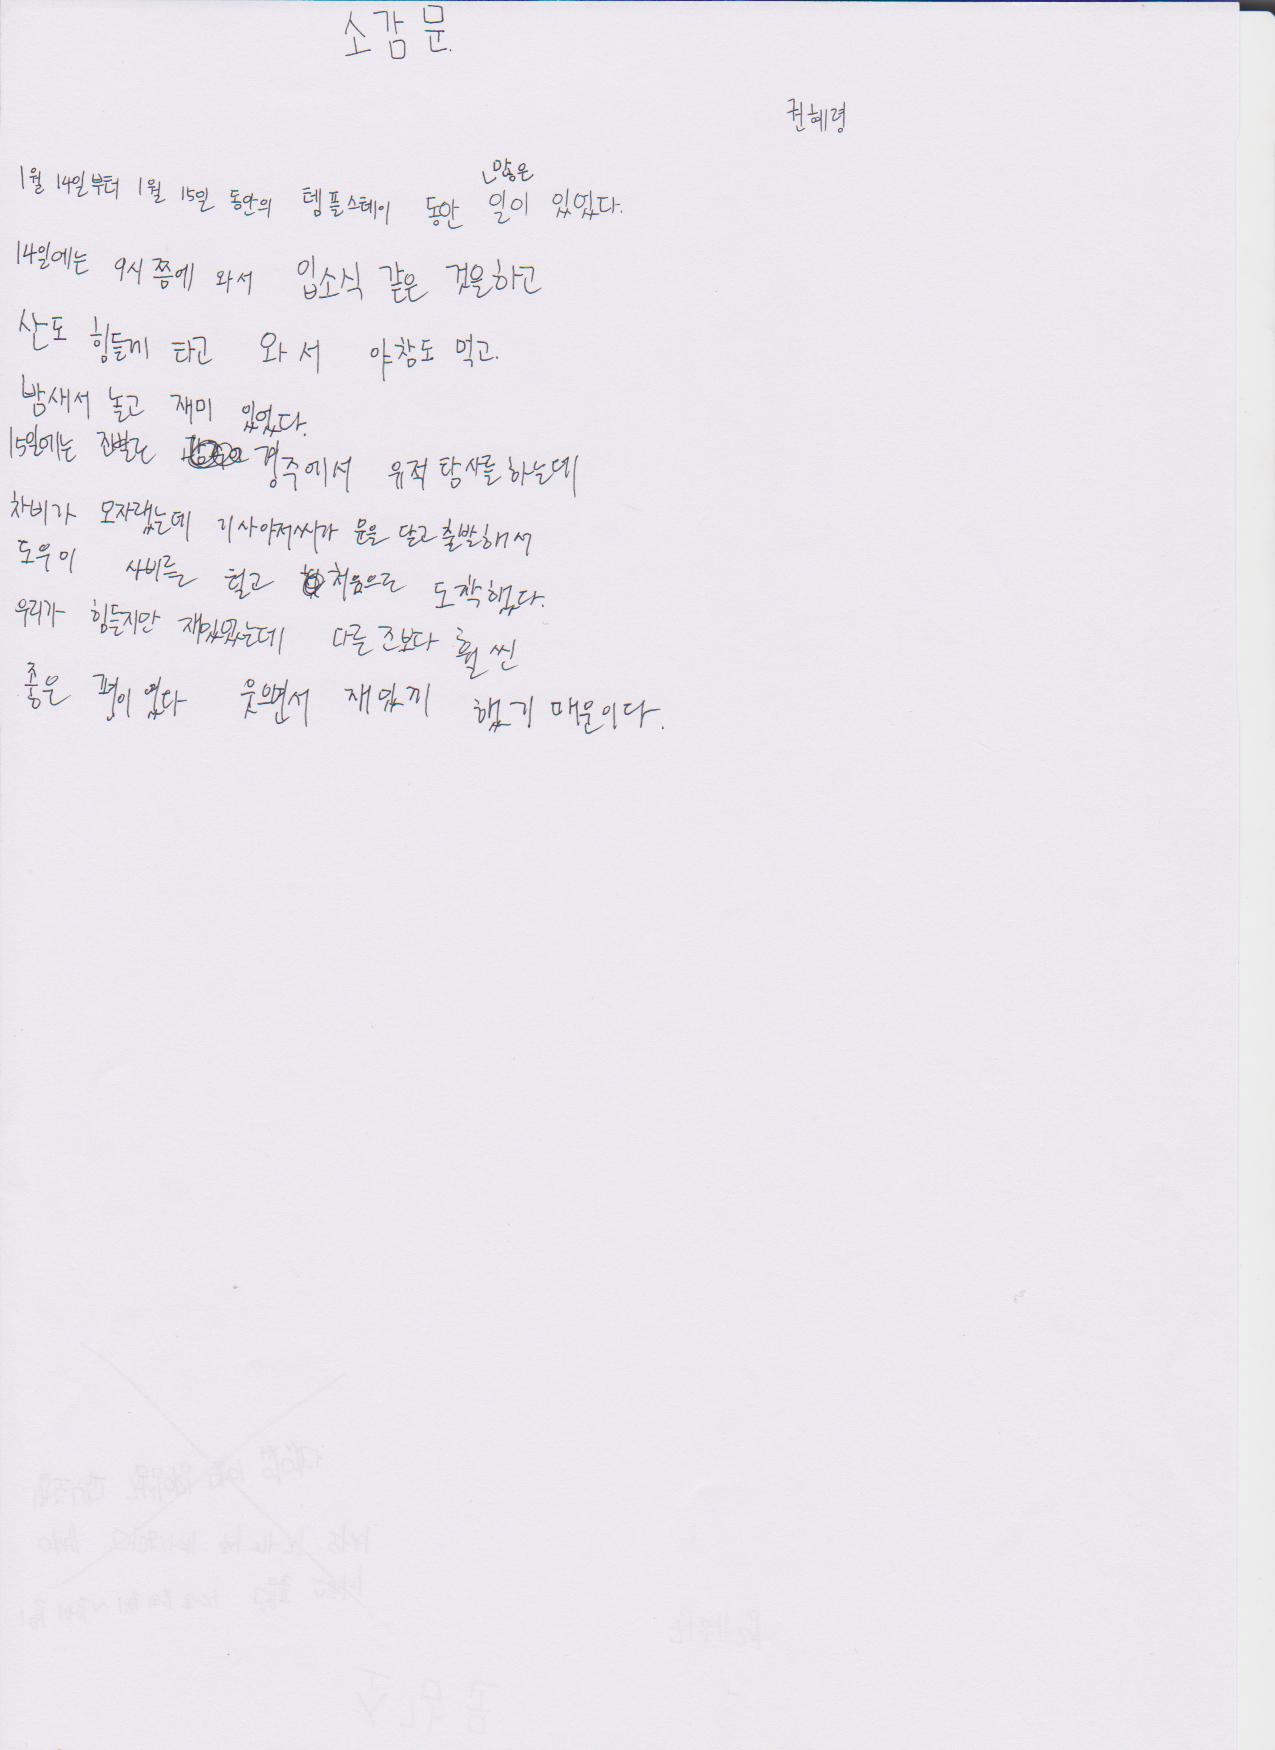 소감문.
권혜령
1월 14일부터 1월 15일 동안의 템플스테이 동안 많은 일이 있었다.
14일에는 9시 쯤에 와서 입소식 같은 것을하고
산도 힘들게 타고 와서 야참도 먹고.
밤새서 놀고 재미 있었다.
15일에는 조별로 경주에서 유적탐사를 하는데
차비가 모자랐는데 기사아저씨가 문을 닫고 출발해서
도우미 사비를 털고 처음으로 도착했다.
우리가 힘들지만 재밌었는데 다른 조보다 훨씬
좋은 편이 였다 웃으면서 재밌끼 했기 때문이다.